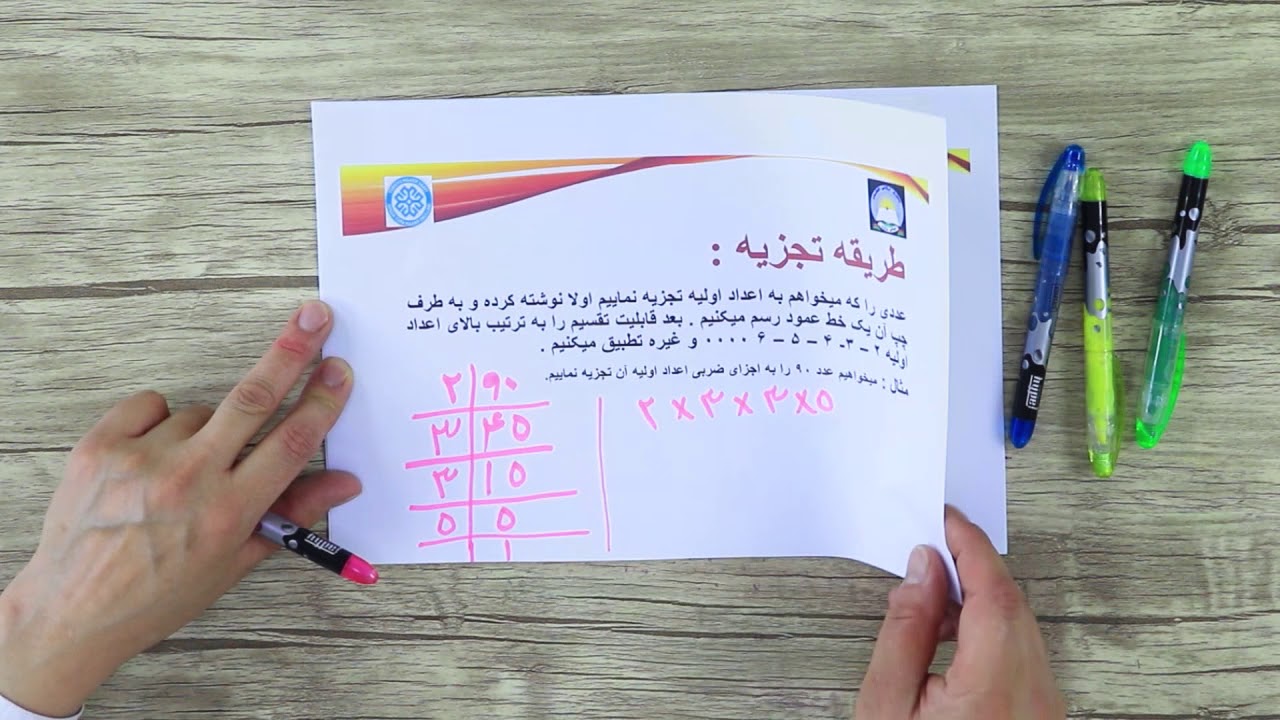 طریقه تجزیه :
عددی را که میخواهم به اعداد اولیه تجزیه نماییم اولا نوشته کرده و به طرف
چپ آن یک خط عمود رسم میکنیم . بعد قابلیت تقسیم را به ترتیب بالای اعداد
اولیه ۲ – ۳- ۴ – ۵ – ۶ ۰۰۰۰ و غیره تطبیق میکنیم .
مثال : میخواهیم عدد ۹۰ را به اجزای ضربی اعداد اولیه آن تجزیه نماییم.
۲ | ۹۰
۳ | ۴۵
۳ | ۱۵
۵ | ۵
۱
۲ × ۳ × ۳ × ۵